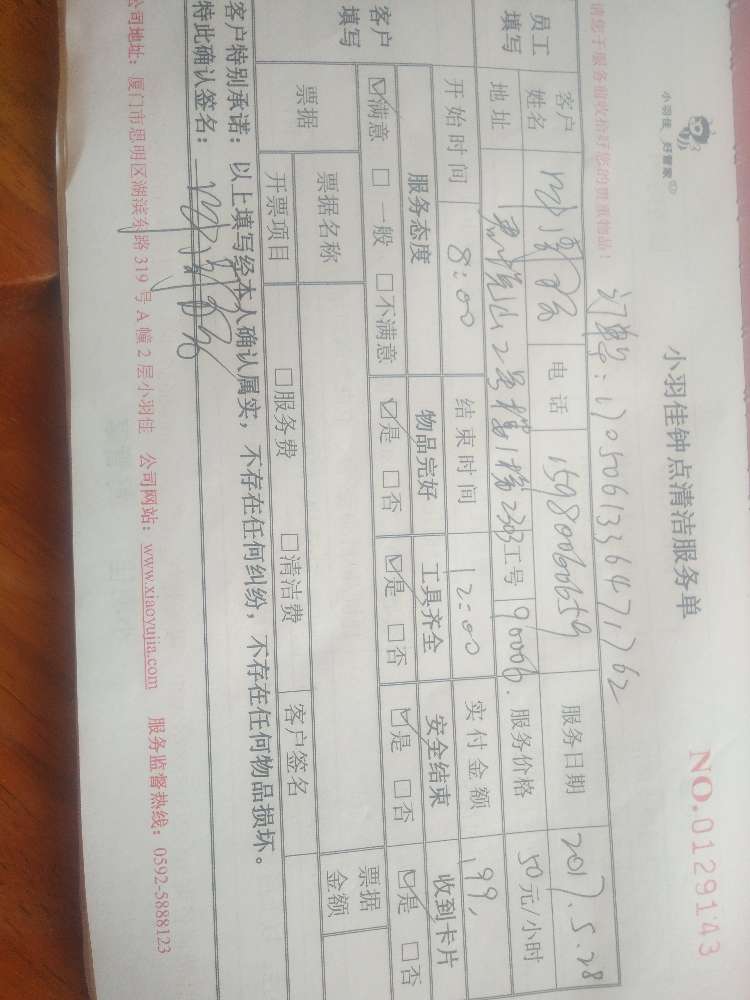 小羽佳 好管家
小羽佳钟点清洁服务单
NO.0129143
请您于服务前收拾好您的贵重物品！
订单号：1705061336471762
员工填写
客户姓名 电话 15980060659 服务日期 2017.5.28
地址 2号楼1梯2303 工号 90006. 服务价格 50元/小时
开始时间 8:00 结束时间 12:00 实付金额 199.
客户填写
服务态度 物品完好 工具齐全 安全结束 收到卡片
☑满意 □一般 □不满意 ☑是 □否 ☑是 □否 ☑是 □否 ☑是 □否
票据 票据名称 票据金额
开票项目 □服务费 □清洁费 客户签名
客户特别承诺：以上填写经本人确认属实，不存在任何纠纷，不存在任何物品损坏。
特此确认签名：
公司地址：厦门市思明区湖滨东路319号A幢2层小羽佳 公司网站：www.xiaoyujia.com 服务监督热线：0592-5888123